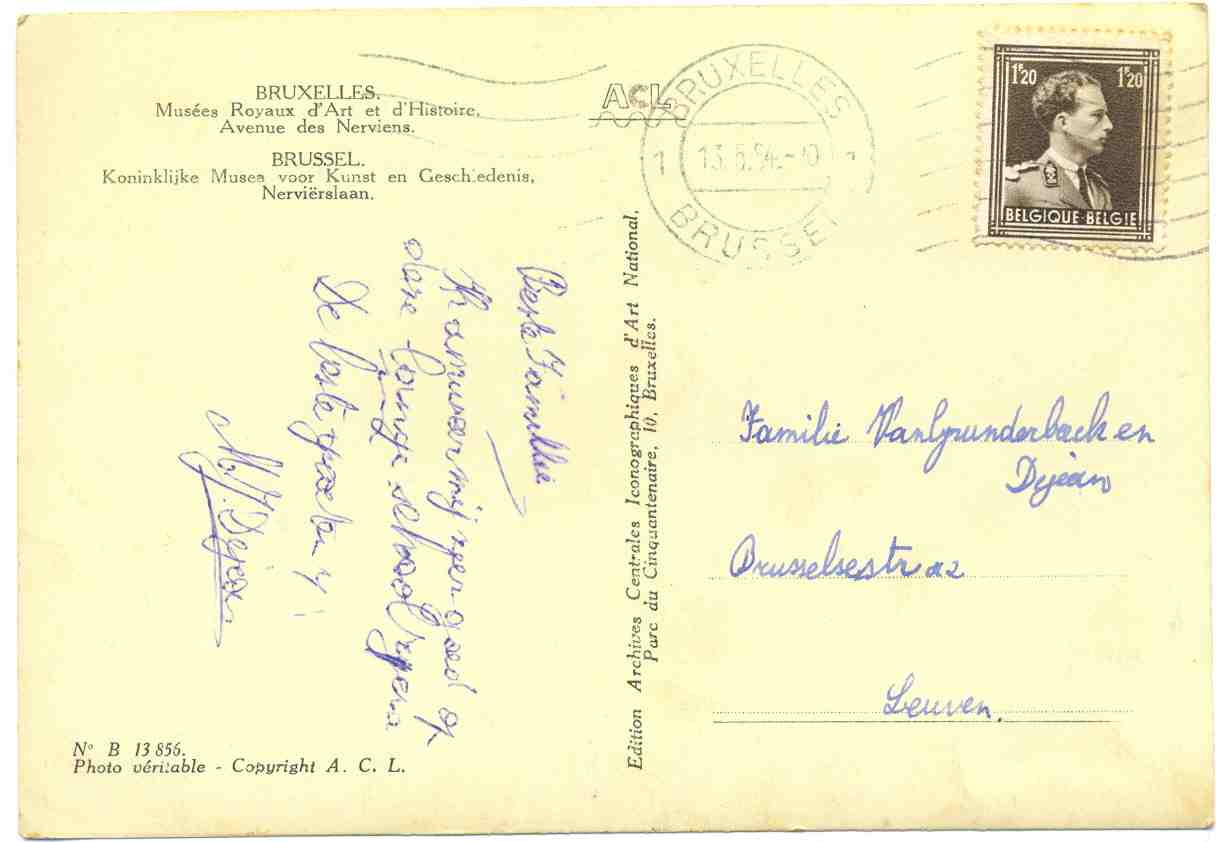 BRUXELLES.
Musées Royaux d'Art et d'Histoire,
Avenue des Nerviens.
BRUSSEL.
Koninklijke Musea voor Kunst en Geschiedenis,
Nerviërslaan.
ACL
BRUXELLES
1 13.5.54.-
BRUSSEL
1F20 1F20
BELGIQUE-BELGIE
Beste Familie
amuseer mij zeer goed op
deze lange school
De beste groeten
M.J. Dejean
Edition Archives Centrales Iconographiques d'Art National,
Parc du Cinquantenaire, 10, Bruxelles.
Familie VanGrunderbeek en
Dejean
Brusselsestr
Leuven.
N° B 13 856.
Photo véritable - Copyright A. C. L.